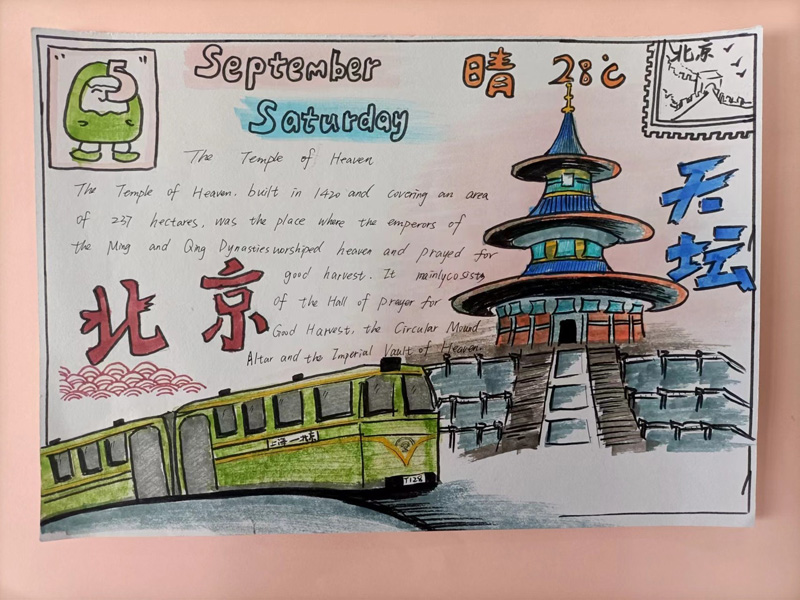 5
September
Saturday
晴 28℃
北京
The Temple of Heaven
The Temple of Heaven. built in 1420 and covering an area
of 237 hectares, was the place where the emperors of
the Ming and Qing Dynasties worshiped heaven and prayed for
good harvest. It mainlycosists
of the Hall of prayer for
Good Harvest, the Circular Mound
Altar and the Imperial Vault of Heaven.
天坛
北京
上海—北京
T128